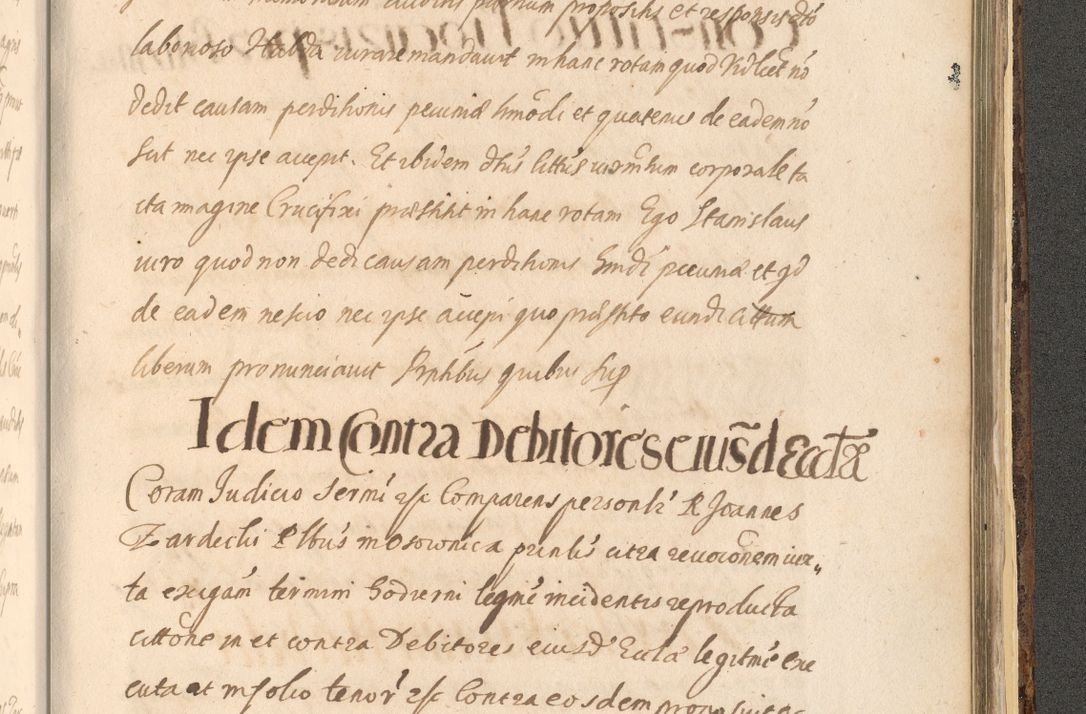 propositis et responsis dto
laborioso Halda iurare mandavit in hanc rotam quod Vidlcet nō
dedit causam perditionis pecuniæ hmōdi et quatenus de eadem nō
scit nec ipse accepit. Et ibidem dtūs littūs iurmītum corporale ta
cta imagine Crucifixi præstitit in hanc rotam Ego Stanislaus
iuro quod non dedi causam perditionis hmdī pecuniæ et qd
de eadem nescio nec ipse accepi quo præstito eundē
liberum pronunciavit Pntībus quibus sup
Idem Contra Debitores eiusd̄ Ecclæ
Coram Judicio Sermī etc Comparens personlr R Joannes
Zardecki Plbūs citra revocōnem iux„
ta exigām termini hodierni legmē incidentis reproducta
cittōne in et contra Debitores eiusd Ecclæ legitmē exe
cuta at in solio tenor etc Contra eosdem